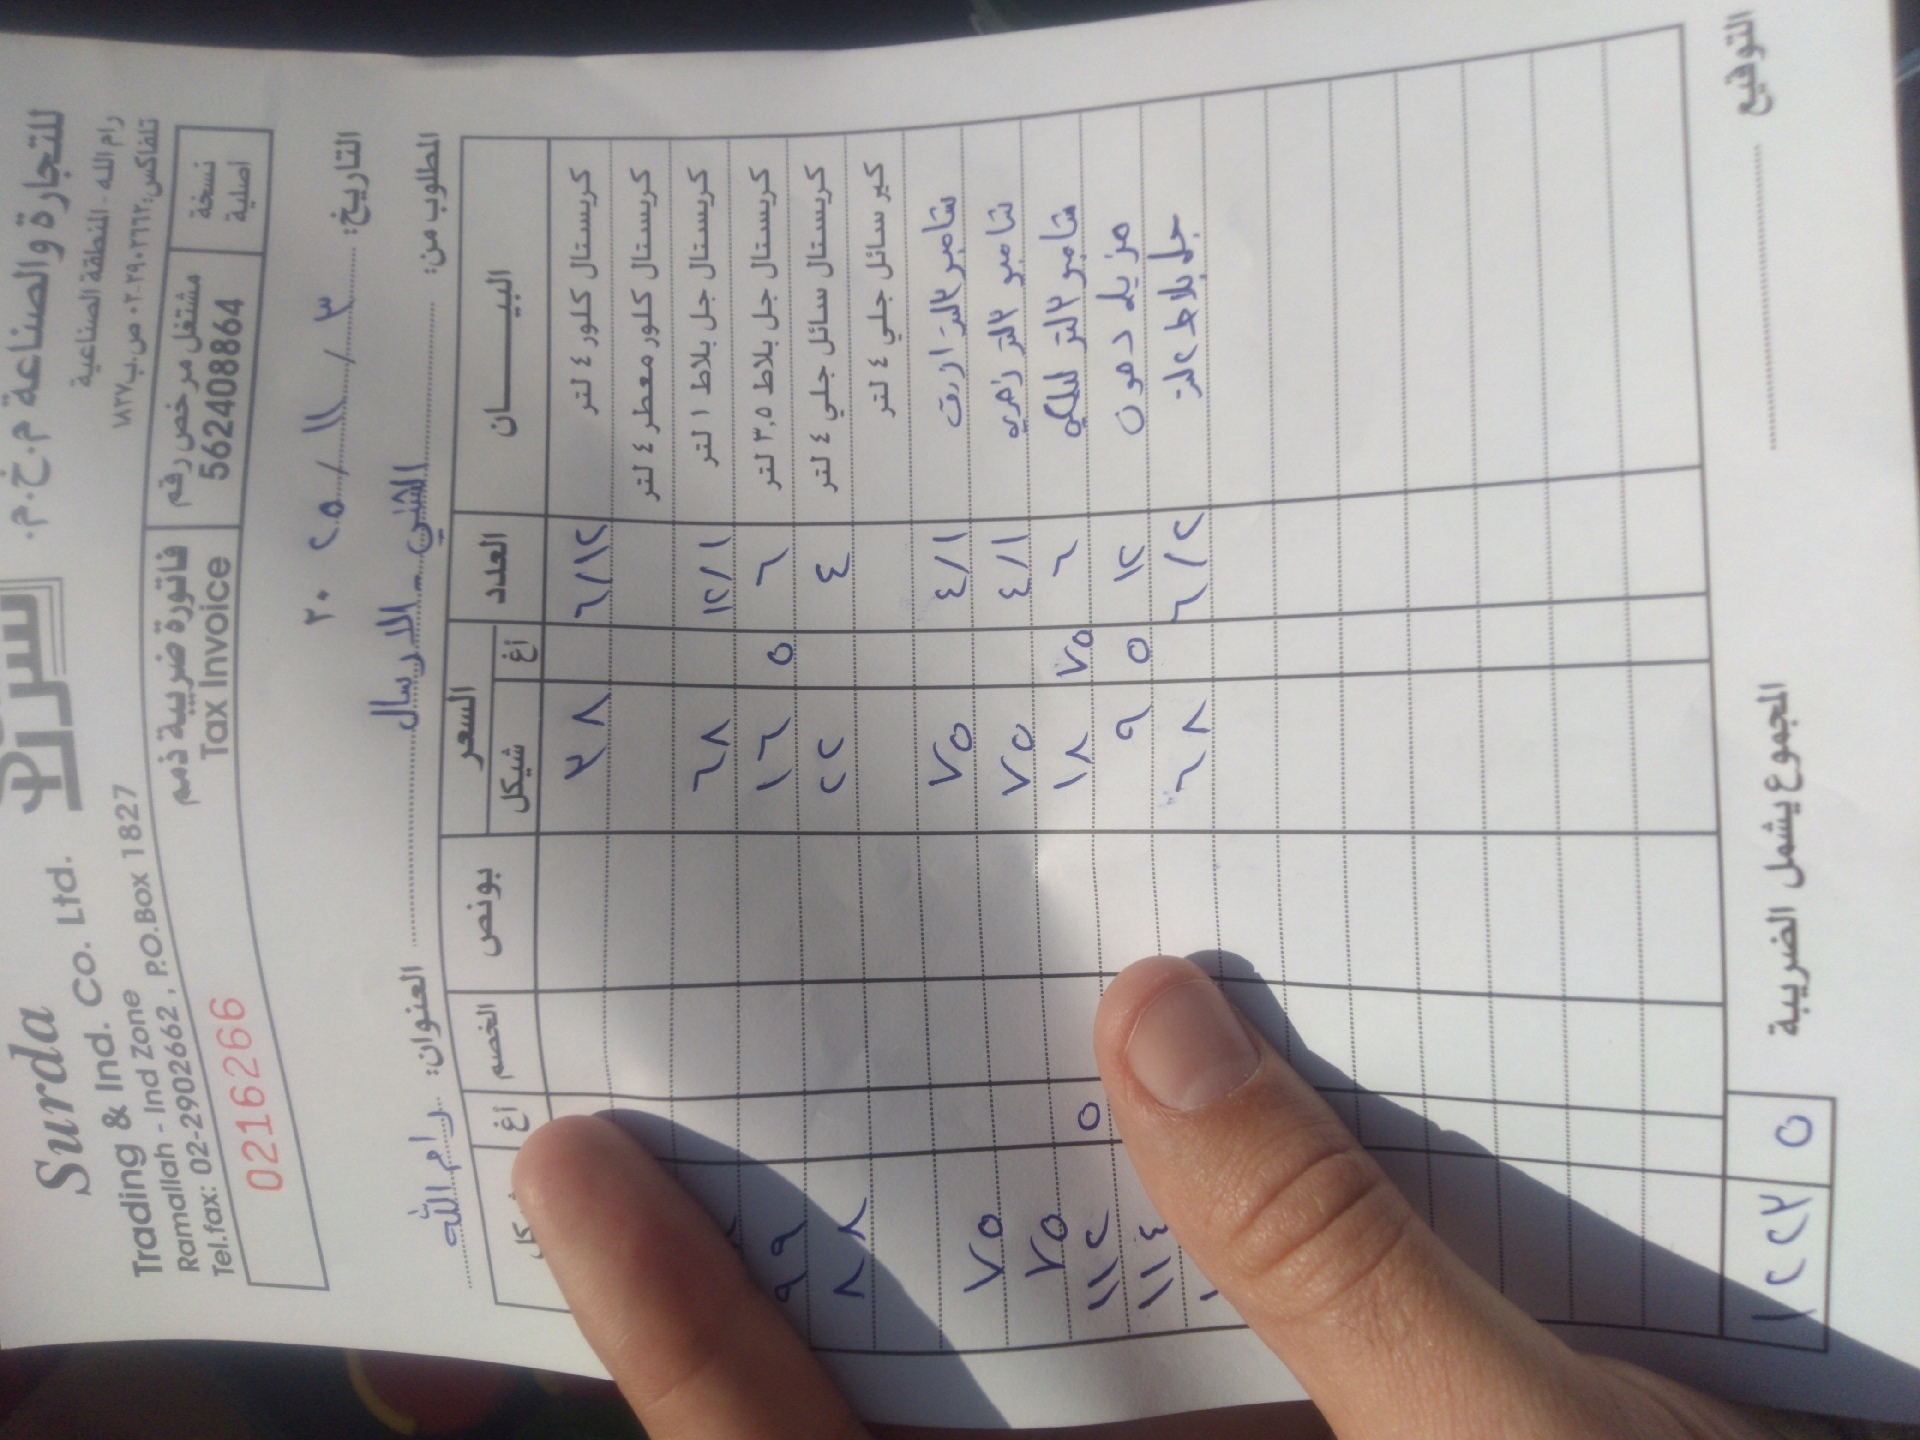 سردا
للتجارة والصناعة م.خ.م.
رام الله - المنطقة الصناعية
تلفاكس: ٠٢-٢٩٠٢٦٦٢ ص.ب ١٨٢٧
Surda
Trading & Ind. Co. Ltd.
Ramallah - Ind Zone
Tel.fax: 02-2902662 , P.O.Box 1827
نسخة اصلية
مشتغل مرخص رقم
562408864
فاتورة ضريبية ذمم
Tax Invoice
0216266
التاريخ: ٣ / ١١ / ٢٠٢٥
المطلوب من: الثني - الارسال العنوان: رام الله
البيــــــان العدد السعر بونص الخصم اغ
شيكل اغ
كريستال كلور ٤ لتر ٦/١٢ ٣٨
كريستال كلور معطر ٤ لتر
كريستال جل بلاط ١ لتر ١٢/١ ٦٨
كريستال جل بلاط ٣,٥ لتر ٦ ١٦ ٥ ٩٩
كريستال سائل جلي ٤ لتر ٤ ٢٢ ٨٨
كير سائل جلي ٤ لتر
شامبو ٣لتر ازرق ٤/١ ٧٥ ٧٥
شامبو ٣لتر زهري ٤/١ ٧٥ ٧٥
شامبو ٣لتر ٦ ١٨ ٧٥ ١١٢ ٥
مزيل دهون ١٢ ٩ ٥ ١١٤
جل بلاط ٤لتر ٦/٢ ٦٨
المجموع يشمل الضريبة ١٢٢٣ ٥
التوقيع